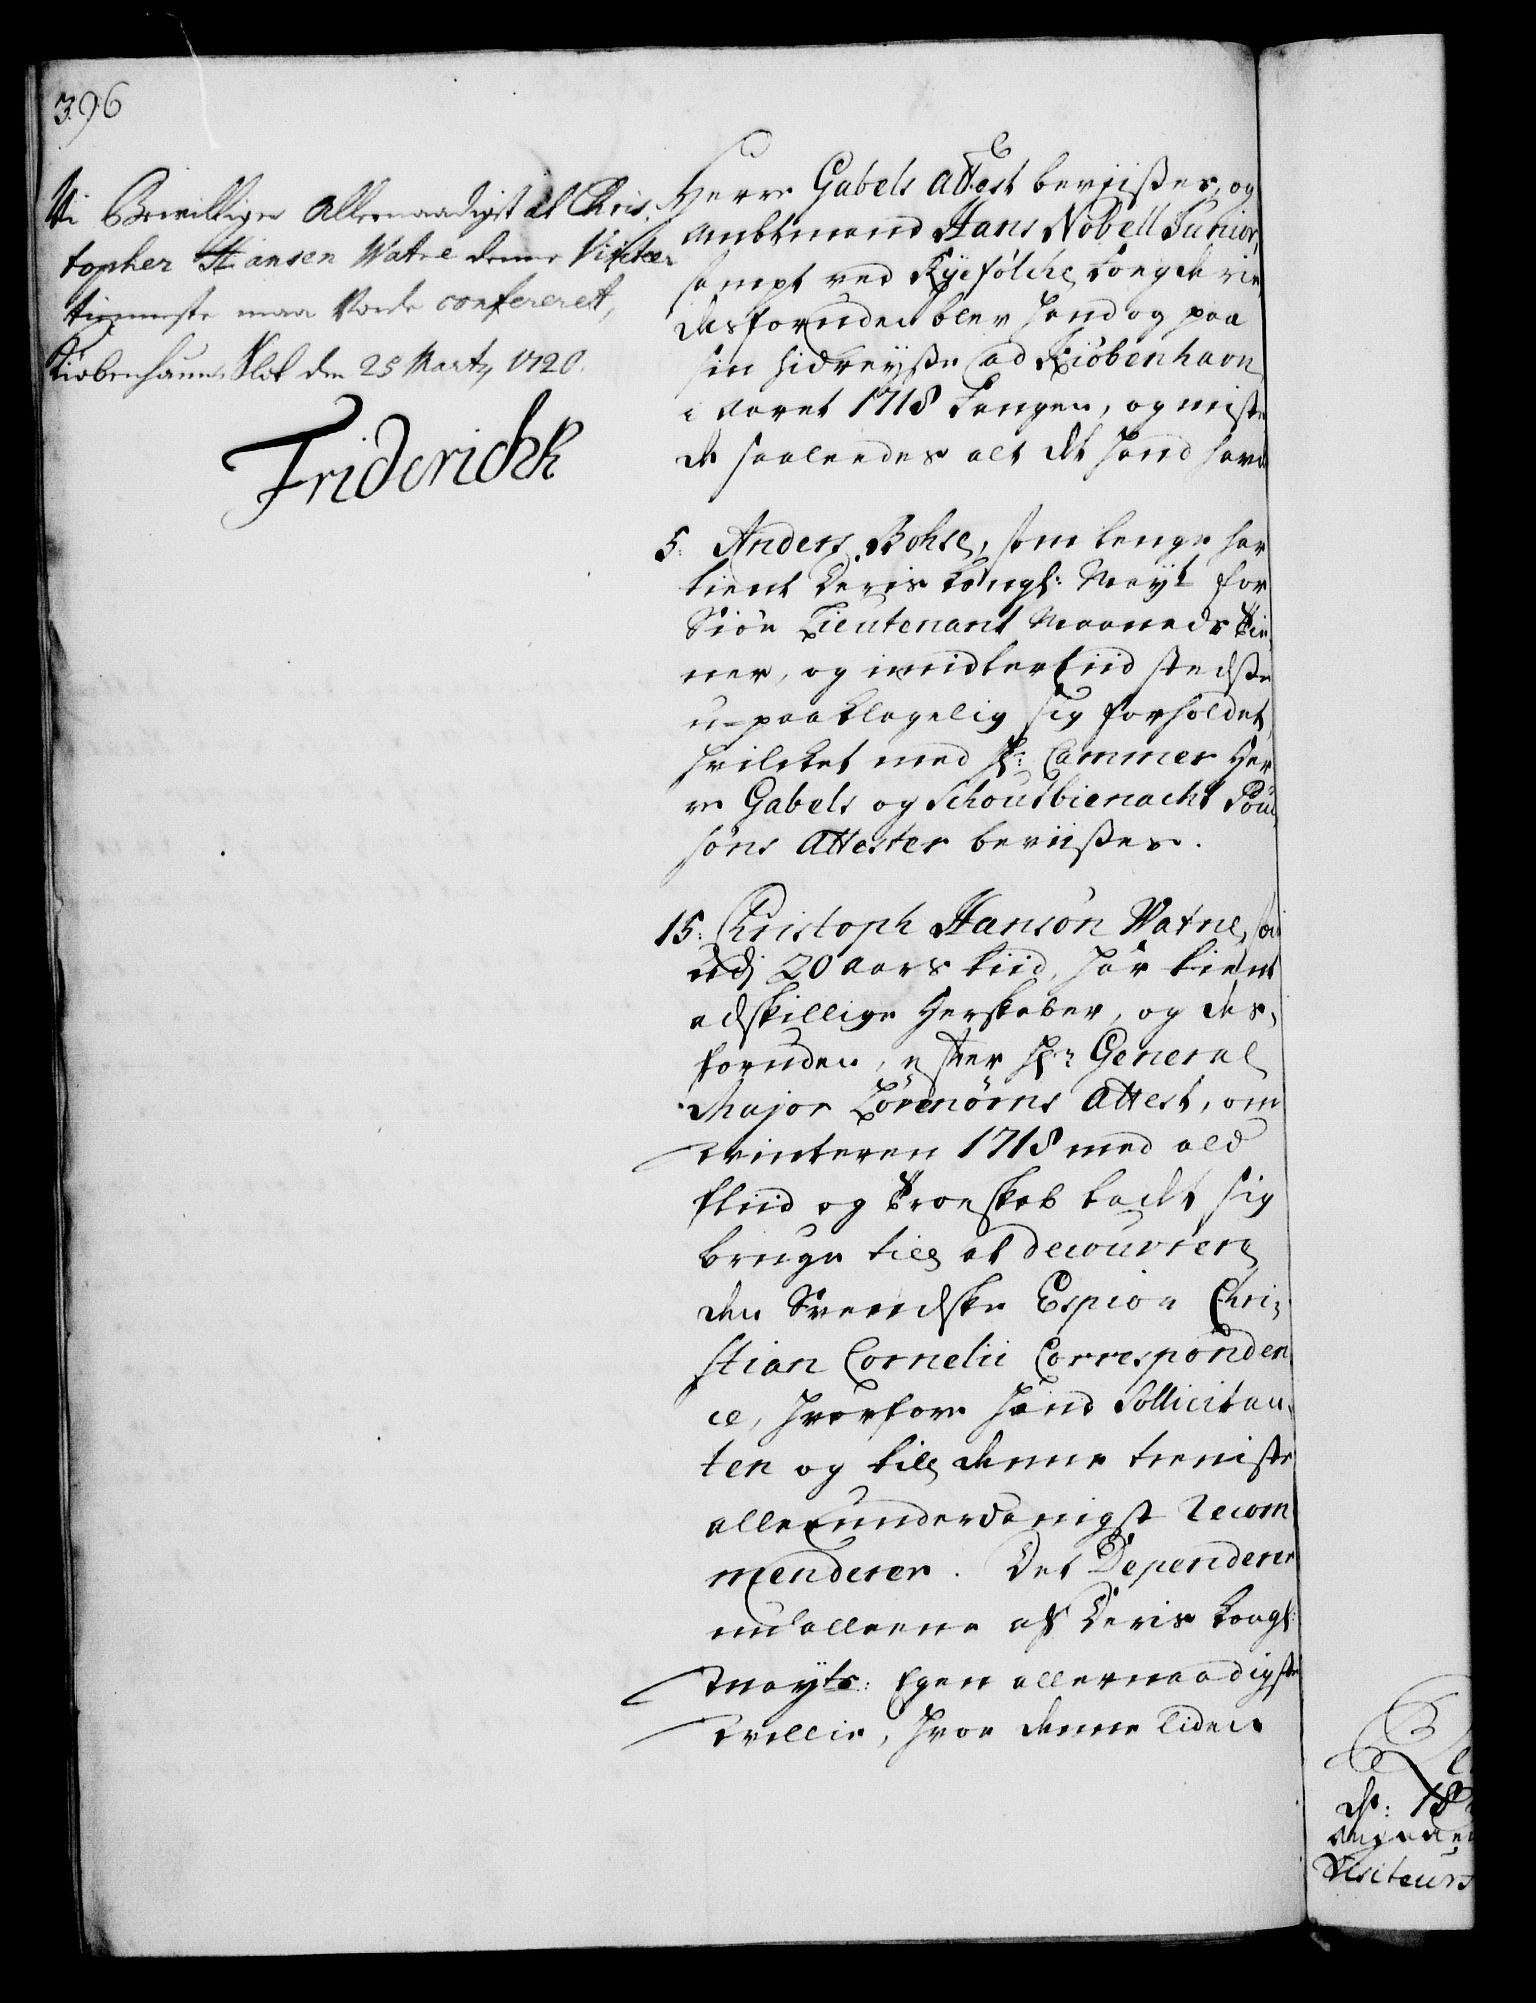 396
Vi Bevillige Allernaadigst at Chris-
topher Hansen Watne denne Visiteur
tienneste maa Vorde confereret,
Kiøbenhauns Slot den 25 Marty 1720.
Friderich R
Herre Gabels Attest beviißes, og
Ambtmand Hans Nobell Junior,
sampt ved Ryefølche Tongderie
desforuden blev hand og paa
sin hidreyße ad Kiøbenhavn
i Aaret 1718 fangen, og miste
de saaleedes alt det hand havde
5: Anders Bohse, som lenge har
tient Deris Kongl: Mayt for
Siøe Lieutenant Maaneds Tie
ner, og imidlertiid stedße
u-paaklagelig sig forholdet,
hvilcket med H: Cammer Her
re Gabels og Schoutbienacht Poul
søns Attester beviißes.
15: Christoph Hansøn Watne, som
udj 20 aars tiid, har tient
adskillige Herskaber, og des-
foruden, efter Hr: General
Major Løvenørns Attest, om
winteren 1718 med ald
fliid og Troeskab ladt sig
bruge till at decouvrere
den Svendske Espion Chri-
stian Cornelii Corresponden
ce, hvorfore hand Sollicitan-
ten og till denne tieniste
allerunderdanigst Recom
menderer. Det Dependerer
nu alleene af Deris Kongl:
Mayts: Egen allernaadigste
willie, hvor denne liden
Visiteurs